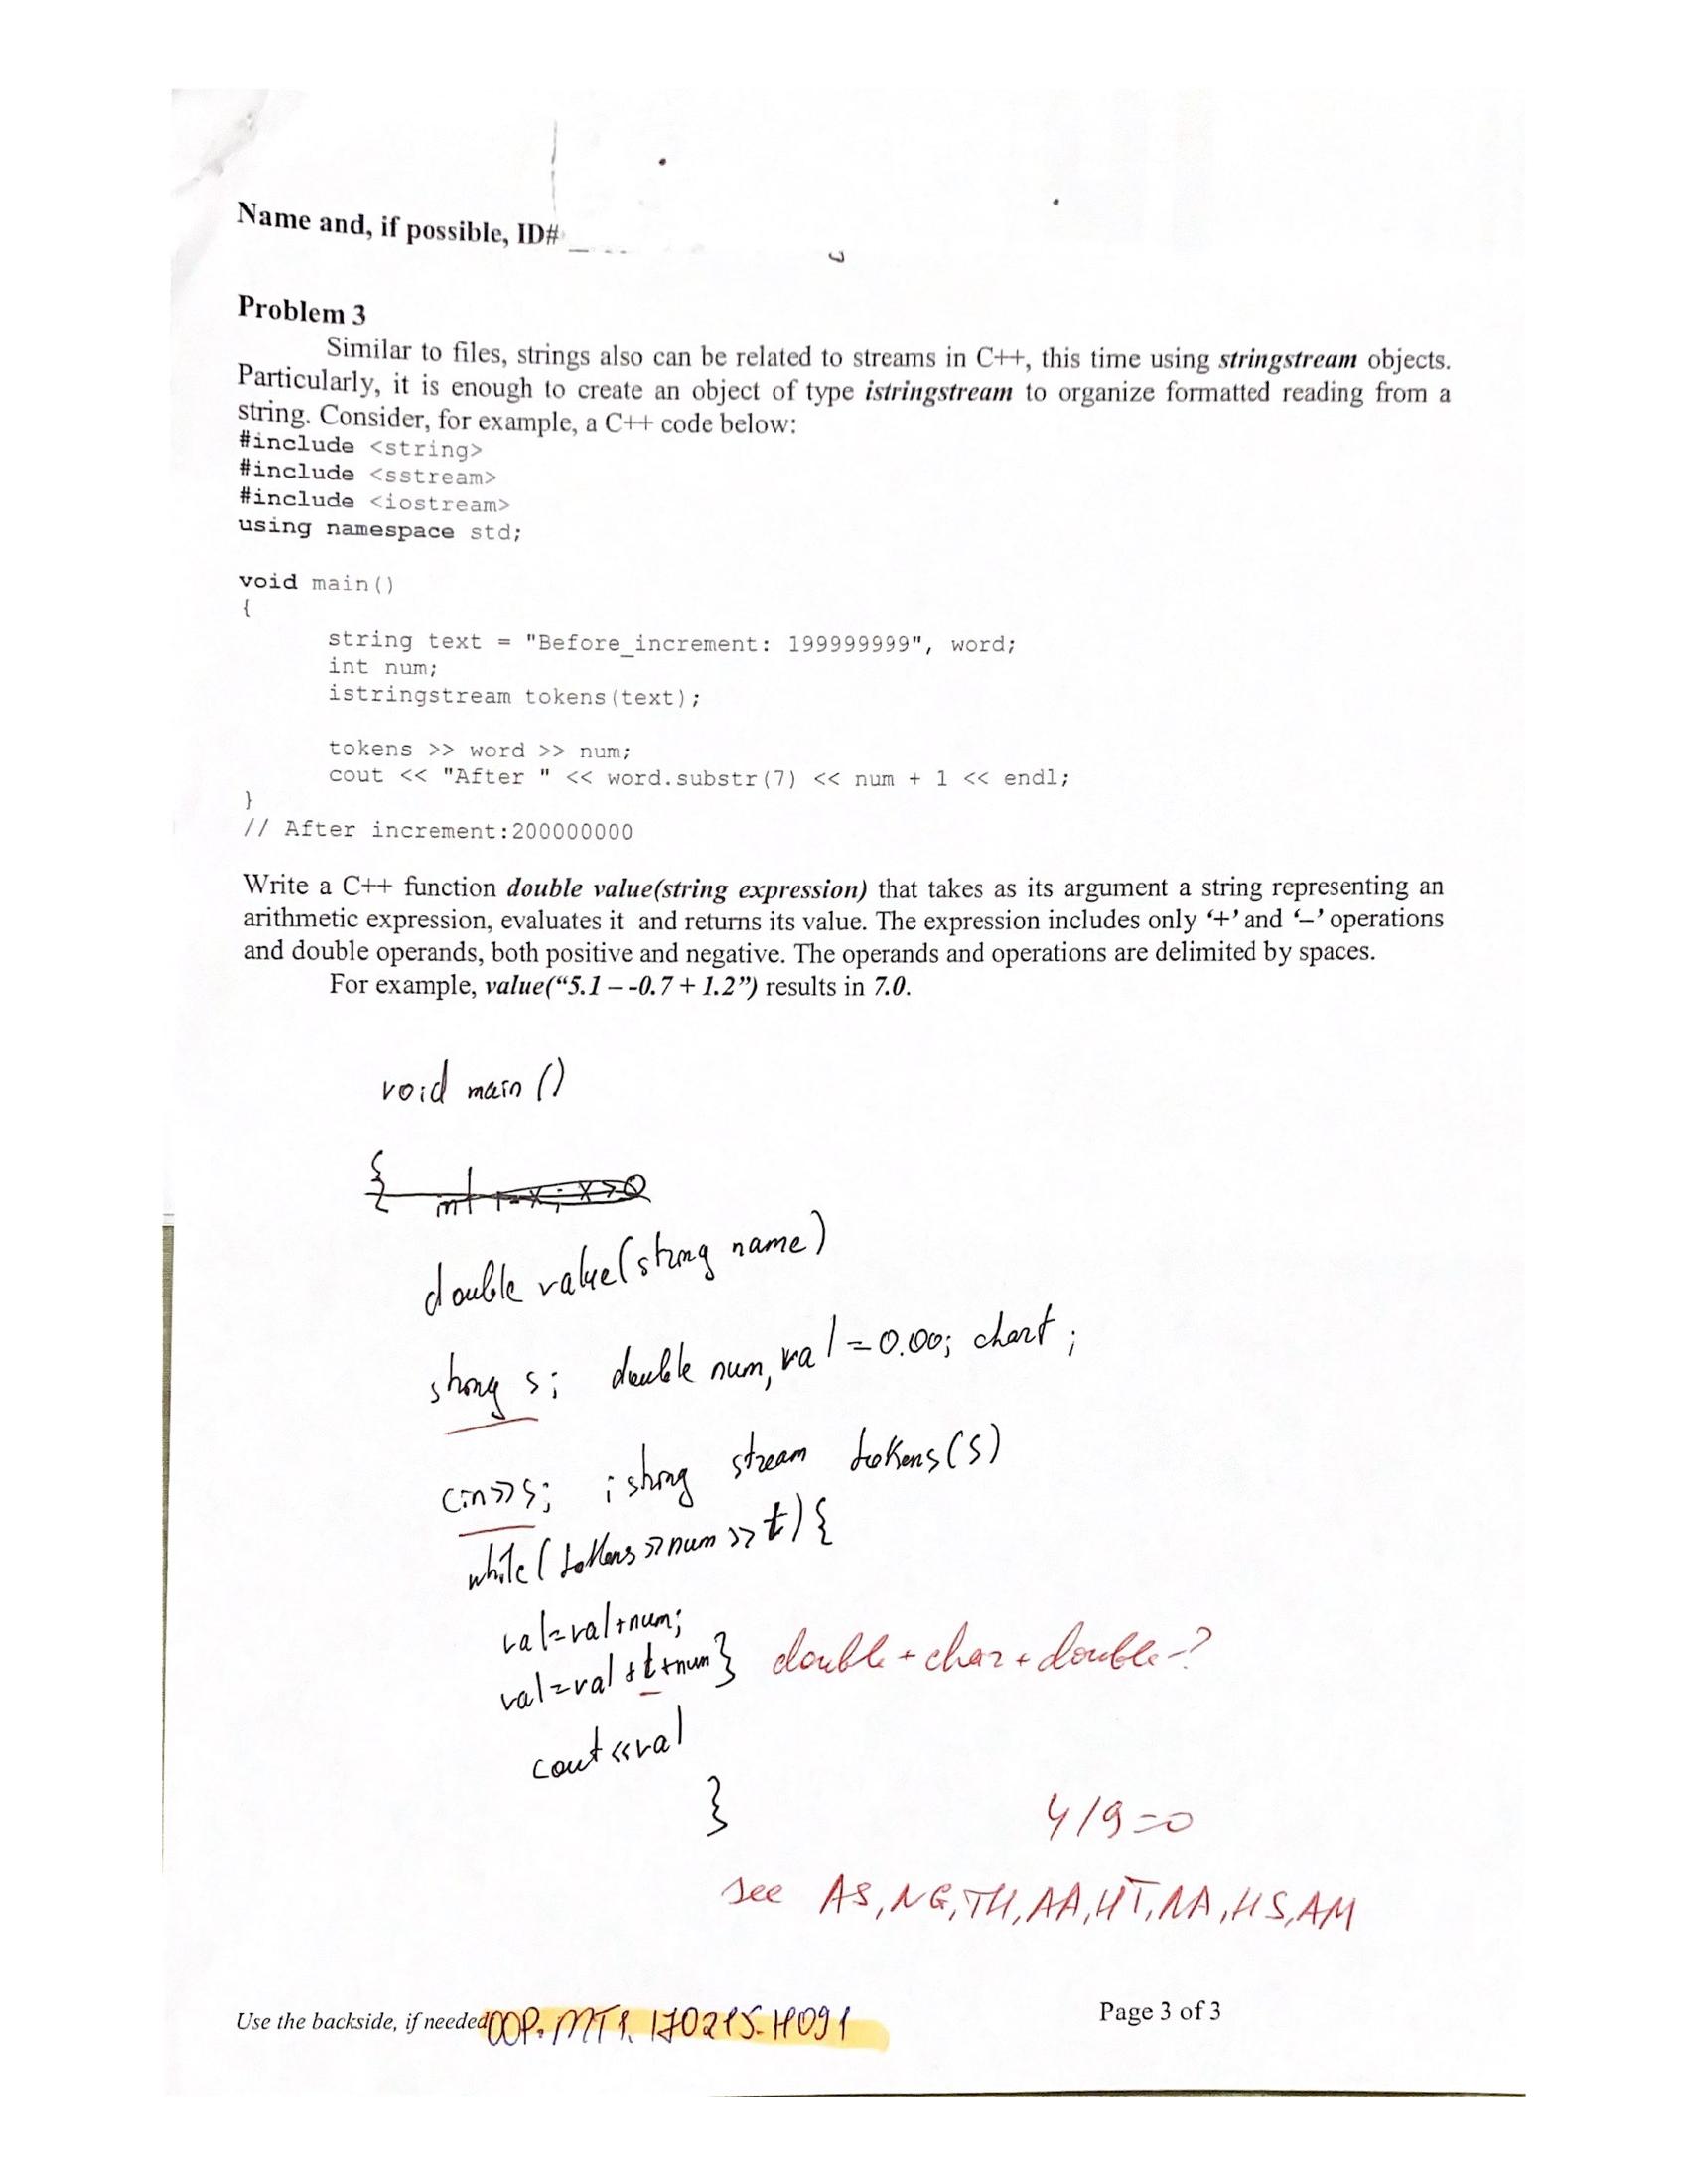 Name and, if possible, ID#
Problem 3
Similar to files, strings also can be related to streams in C++, this time using stringstream objects.
Particularly, it is enough to create an object of type istringstream to organize formatted reading from a
string. Consider, for example, a C++ code below:
#include <string>
#include <sstream>
#include <iostream>
using namespace std;
void main()
{
string text = "Before_increment: 199999999", word;
int num;
istringstream tokens(text);
tokens >> word >> num;
cout << "After " << word.substr(7) << num + 1 << endl;
}
// After increment:200000000
Write a C++ function double value(string expression) that takes as its argument a string representing an
arithmetic expression, evaluates it and returns its value. The expression includes only ‘+’ and ‘–’ operations
and double operands, both positive and negative. The operands and operations are delimited by spaces.
For example, value(“5.1 – -0.7 + 1.2”) results in 7.0.
void main ()
{
double value(string name)
string s; double num, val = 0.00; char t;
cin>>s; istring stream tokens(s)
while(tokens >> num >> t) {
val=val+num;
val=val+t+num} double + char + double - ?
cout<<val
}
4/9=0
see AS, NG, TH, AA, HT, NA, HS, AM
Use the backside, if needed OOP. MT1. 170215. H091
Page 3 of 3